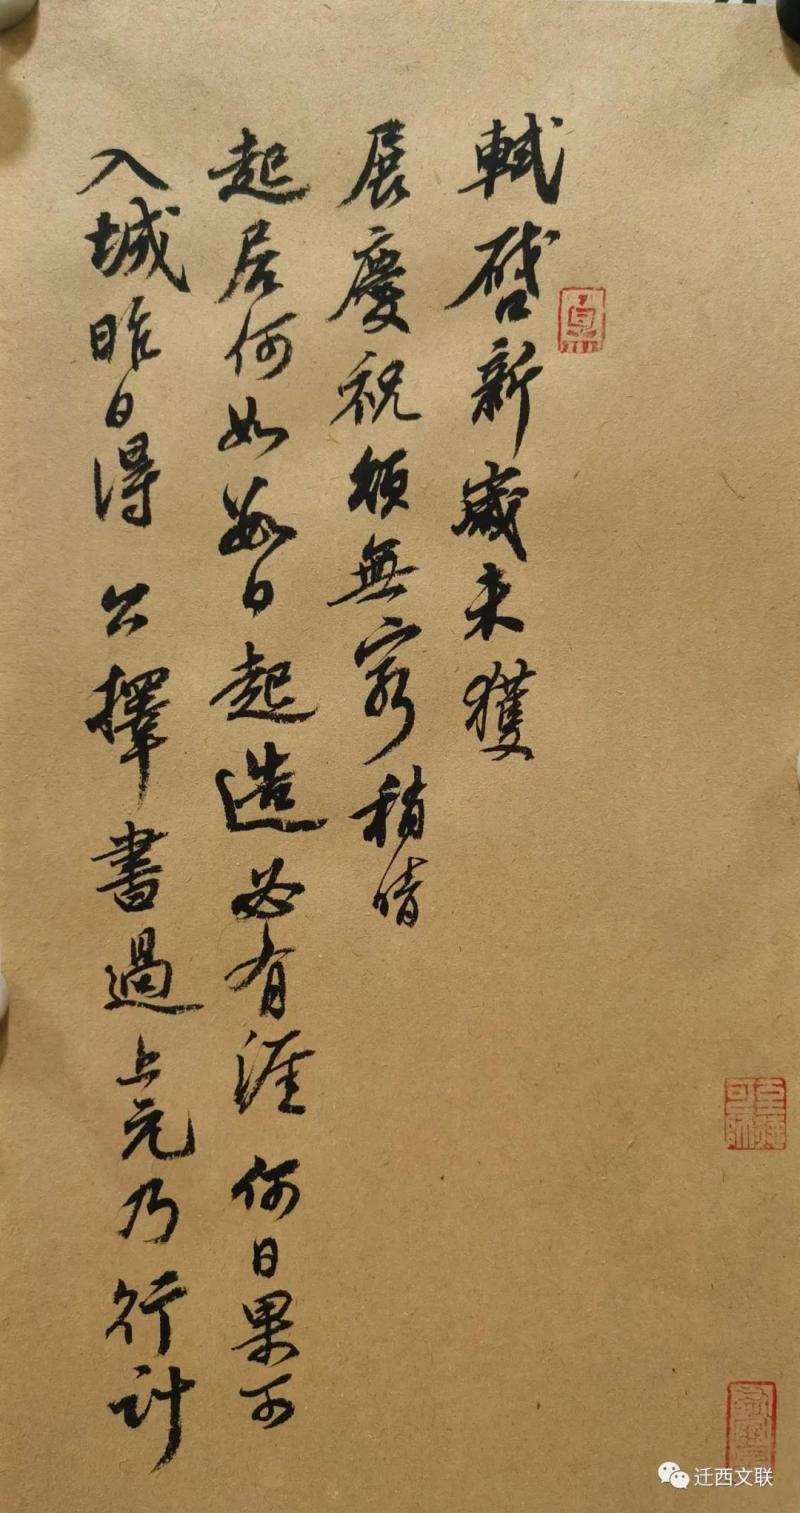 軾啓新歲未獲
展慶祝頌無窮稍晴
起居何如數日起造必有涯何日果可
入城昨日得 公擇書過上元乃行計
迁西文联